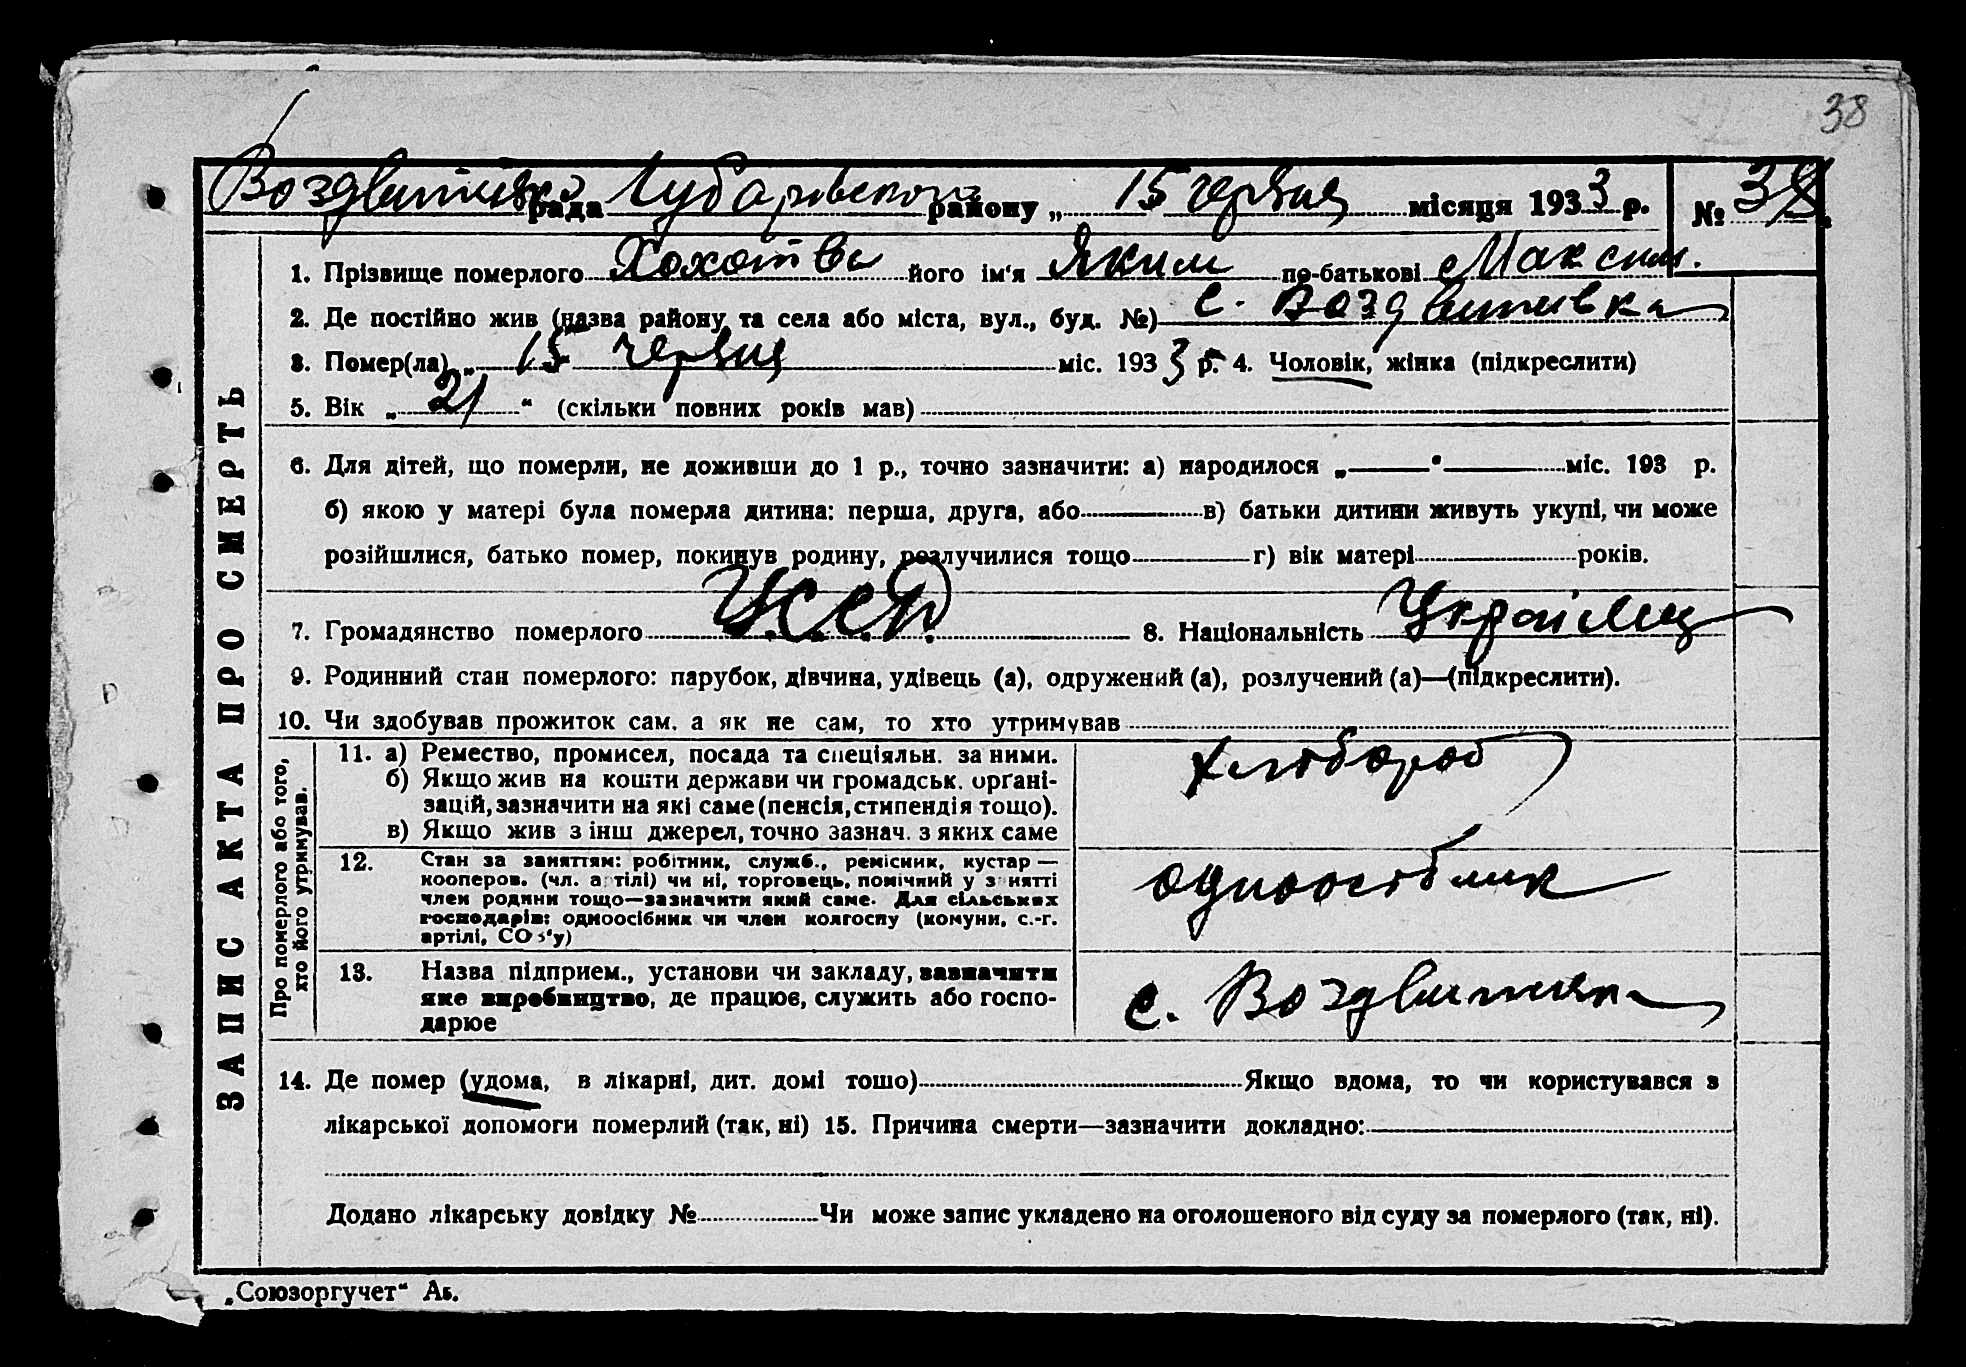 38
Воздвижівська рада Чубарівського району „ 15 червня місяця 1933 р. № 38
ЗАПИС АКТА ПРО СМЕРТЬ
1. Прізвище померлого Хохотва його ім'я Яким по-батькові Максим.
2. Де постійно жив (назва району та села або міста, вул., буд. №) с. Воздвижівка
3. Помер(ла) „ 15 червня міс. 1933 р. 4. Чоловік, жінка (підкреслити)
5. Вік „ 21 “ (скільки повних років мав)
6. Для дітей, що померли, не доживши до 1 р., точно зазначити: а) народилося „ “ міс. 193 р.
б) якою у матері була померла дитина: перша, друга, або в) батьки дитини живуть укупі, чи може
розійшлися, батько помер, покинув родину, розлучилися тощо г) вік матері років.
7. Громадянство померлого УССР. 8. Національність Українец
9. Родинний стан померлого: парубок, дівчина, удівець (а), одружений (а), розлучений (а)—(підкреслити).
10. Чи здобував прожиток сам, а як не сам, то хто утримував
Про померлого або того,
хто його утримував.
11. а) Ремество, промисел, посада та спеціяльн. за ними.
б) Якщо жив на кошти держави чи громадськ. органі-
зацій, зазначити на які саме (пенсія, стипендія тощо).
в) Якщо жив з інш джерел, точно зазнач. з яких саме
хлібороб
12. Стан за заняттям: робітник, служб., ремісник, кустар —
кооперов. (чл. артілі) чи ні, торговець, помічний у занятті
член родини тощо—зазначити який саме. Для сільських
господарів: одноосібник чи член колгоспу (комуни, с.-г.
артілі, СОЗ'у)
одноосібник
13. Назва підприєм., установи чи закладу, зазначити
яке виробництво, де працює, служить або госпо-
дарює
с. Воздвижівка
14. Де помер (удома, в лікарні, дит. домі тошо) Якщо вдома, то чи користувався з
лікарської допомоги померлий (так, ні) 15. Причина смерти—зазначити докладно:
Додано лікарську довідку № Чи може запис укладено на оголошеного від суду за померлого (так, ні).
„Союзоргучет“